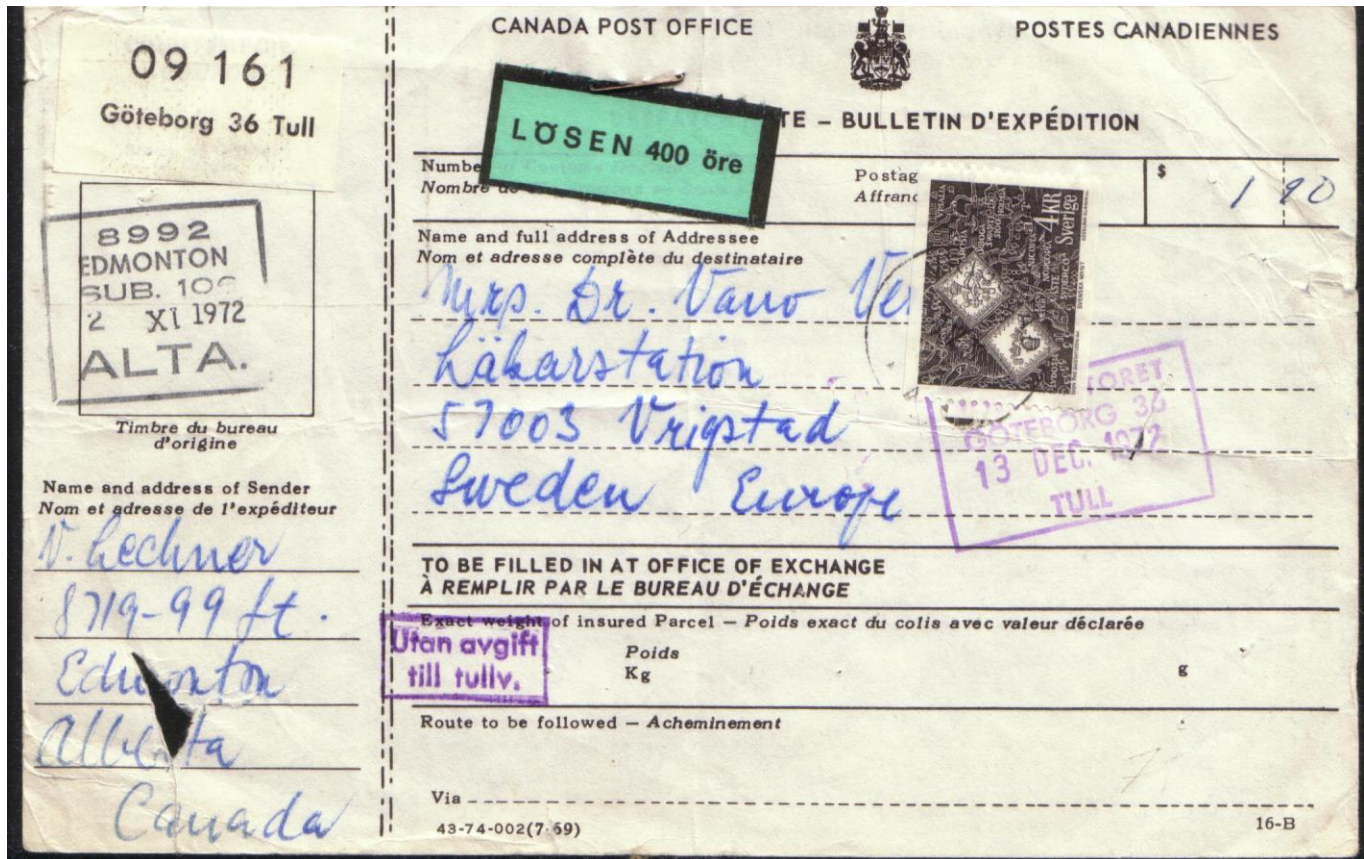 09 161
Göteborg 36 Tull
8992
EDMONTON
SUB. 10
2 XI 1972
ALTA.
Timbre du bureau
d'origine
Name and address of Sender
Nom et adresse de l'expéditeur
V. Lechner
8719-99 St.
Edmonton
Alberta
Canada
CANADA POST OFFICE
POSTES CANADIENNES
LÖSEN 400 öre
TE – BULLETIN D'EXPÉDITION
Numbe
Nombre de
Postag
Affranc
$ 1 90
4 KR
Sverige
Name and full address of Addressee
Nom et adresse complète du destinataire
Mrs. Dr. Vano Ve
Läkarstation
57003 Vrigstad
Sweden Europe
TORET
GÖTEBORG 36
13 DEC. 1972
TULL
TO BE FILLED IN AT OFFICE OF EXCHANGE
À REMPLIR PAR LE BUREAU D'ÉCHANGE
Exact weight of insured Parcel – Poids exact du colis avec valeur déclarée
Utan avgift
till tullv.
Poids
Kg g
Route to be followed – Acheminement
Via
43-74-002(7-69)
16-B